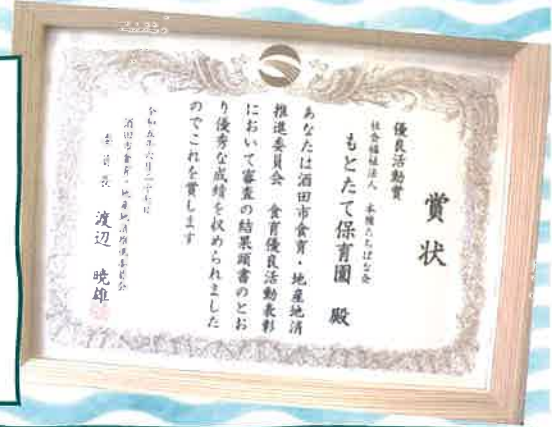 賞状
優良活動賞
社会福祉法人 本楯たちばな会
もとたて保育園 殿
あなたは酒田市食育・地産地消
推進委員会 食育優良活動表彰
において審査の結果頭書のとお
り優秀な成績を収められました
のでこれを賞します
令和五年六月二十七日
酒田市食育・地産地消推進委員会
委員長 渡辺 暁雄